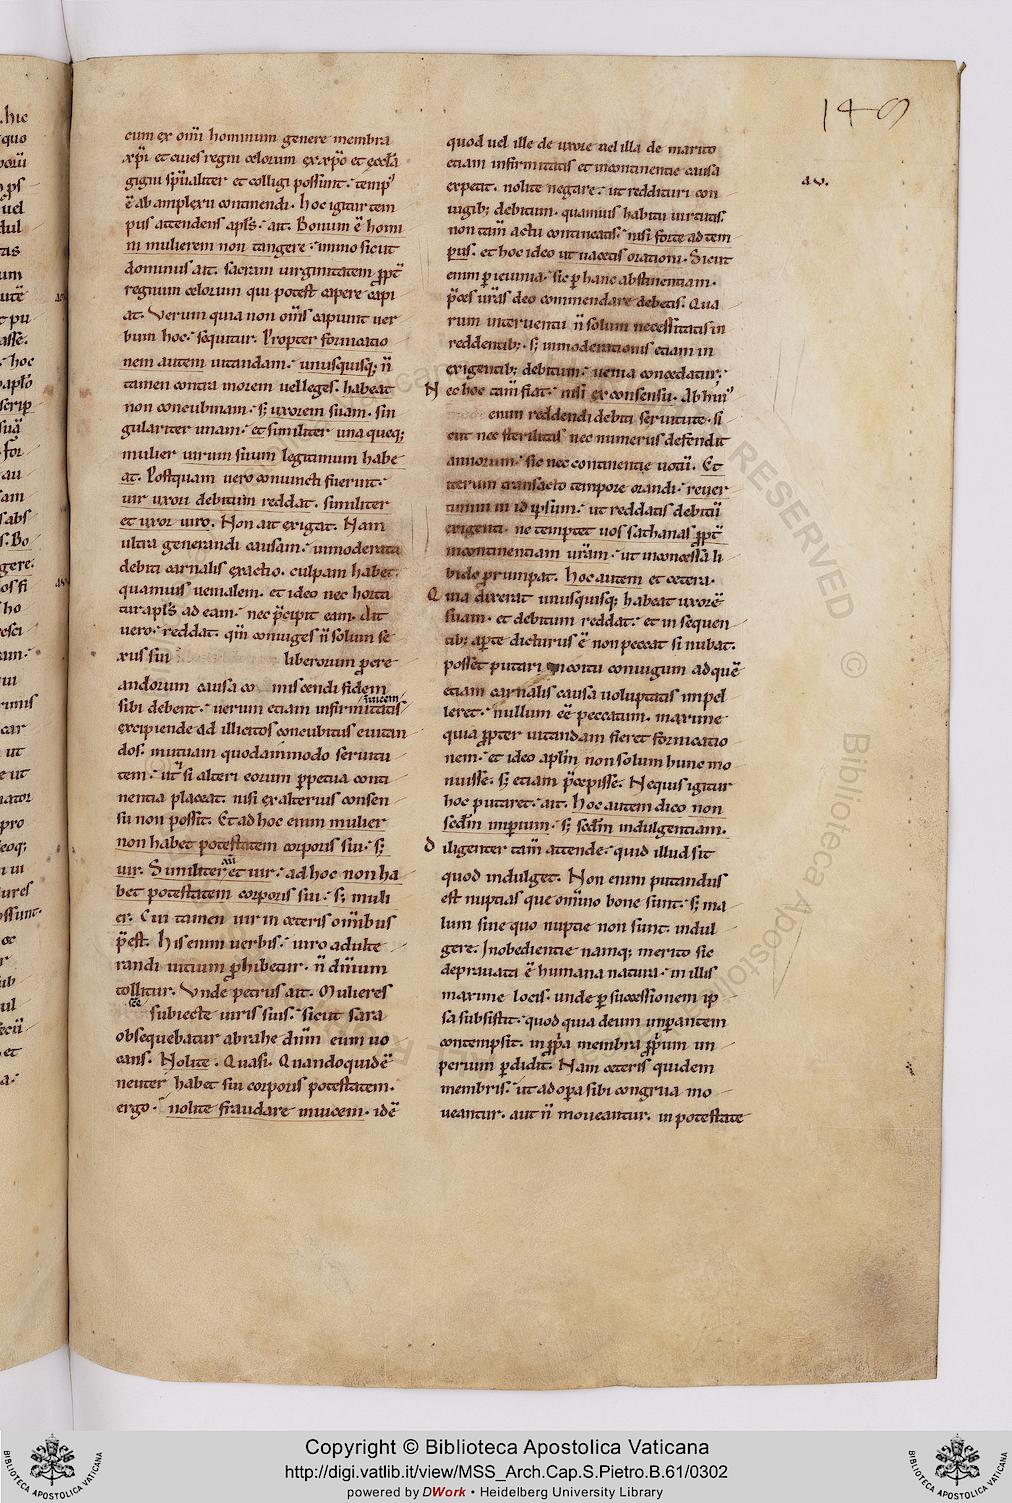 149
cum ex om̄i hominum genere membra
xp̄i et ciues regni celorum ex xp̄o et eccl̄a
gigni sp̄ualiter et colligi possunt. temp'
ē ab amplexu continendi. hoc igitur tem
pus attendens apl̄s. ait. Bonum ē homi
ni mulierem non tangere. immo sicut
dominus ait. sacram uirginitatem p̄pt̄
regnum celorum qui potest capere capi
at. Verum quia non om̄s capiunt uer
bum hoc. sequitur. Propter fornicatio
nem autem uitandam. unusquisq; n̄
tamen contra morem uel leges. habeat
non concubinam. s; uxorem suam. sin
gulariter unam. et similiter una queq;
mulier uirum suum legitimum habe
at. Postquam uero coniuncti fuerint.
uir uxori debitum reddat. similiter
et uxor uiro. Non ait exigat. Nam
ultra generandi causam. immoderata
debiti carnalis exactio. culpam habet.
quamuis uenialem. et ideo nec horta
tur apl̄s ad eam. nec p̄cipit eam. Ait
uero. reddat. qm̄ coniuges n̄ solum se
xus sui liberorum p̄cre
andorum causa co miscendi fidem
sibi debent. uerum etiam infirmitatis
inuicem
excipiende ad illicitos concubitus euitan
dos. mutuam quodammodo seruitu
tem. ut si alteri eorum p̄petua conti
nentia placeat. nisi ex alterius consen
su non possit. Et ad hoc enim mulier
non habet potestatem corporis sui. s;
uir. Similiter et uir. ad hoc non ha
bet potestatem corporis sui. s; muli
er. Cui tamen uir in ceteris omībus
p̄est. His enim uerbis. uiro adulte
randi uitium p̄hibetur. n̄ dn̄ium
tollitur. Vnde petrus ait. Mulieres
subiecte uiris suis. sicut sara
obsequebatur abrahe dn̄m eum uo
cans. Nolite. Quasi. Quandoquidē
neuter habet sui corporis potestatem.
ergo. nolite fraudare inuicem. idē
quod uel ille de uxore uel illa de marito
etiam infirmitatis et incontinentie causa
expetit. nolite negare. ut reddituri con
iugib; debitum. quamuis habitu uirtutis.
non tam̄ actu contineatis. nisi forte ad tem
pus. et hoc ideo ut uacetis orationi. Sicut
enim p̄ ieiunia. sic p̄ hanc abstinentiam.
p̄ces ur̄as deo commendare debetis. Qua
rum interuentu n̄ solum necessitatis in
reddentib;. s; immoderationis etiam in
exigentib; debitum. uenia concedatur.
Nec hoc tam̄ fiat. nisi ex consensu. Ab hui'
enim reddendi debiti seruitute. si
cut nec sterilitas nec numerus defendit
annorum. sic nec continentie uotū. Et
iterum transacto tempore orandi. reuer
timini in id ipsum. ut reddatis debitū
exigenti. ne temptet uos sathanas p̄pt̄
incontinentiam ur̄am. ut inconcessa li
bido prrumpat. Hoc autem et cetera.
Quia dixerat unusquisq; habeat uxorē
suam. et debitum reddat. et in sequen
tib; ap̄te dicturus ē non peccat si nubat.
posset putari in coitu coniugum ad quē
etiam carnalis causa uoluptatis impel
leret. nullum eē peccatum. maxime
quia p̄pter uitandam fieret fornicatio
nem. et ideo apl̄m non solum hunc mo
nuisse. s; etiam p̄cepisse. Ne quis igitur
hoc putaret. ait. Hoc autem dico non
scdm̄ imperium. s; scdm̄ indulgentiam.
Diligenter tam̄ attende. quid illud sit
quod indulget. Non enim putandus
est nuptias que om̄ino bone sunt. s; ma
lum sine quo nuptie non sunt. indul
gere. Inobedientie namq; merito sic
deprauata ē humana natura. in illis
maxime locis. unde p̄ successionem ip
sa subsistit. quod quia deum imperantem
contempsit. in p̄pa membra p̄pum im
perium p̄didit. Nam ceteris quidem
membris. ut ad opa sibi congrua mo
ueantur. aut n̄ moueantur. in potestate
Copyright © Biblioteca Apostolica Vaticana
http://digi.vatlib.it/view/MSS_Arch.Cap.S.Pietro.B.61/0302
powered by DWork • Heidelberg University Library